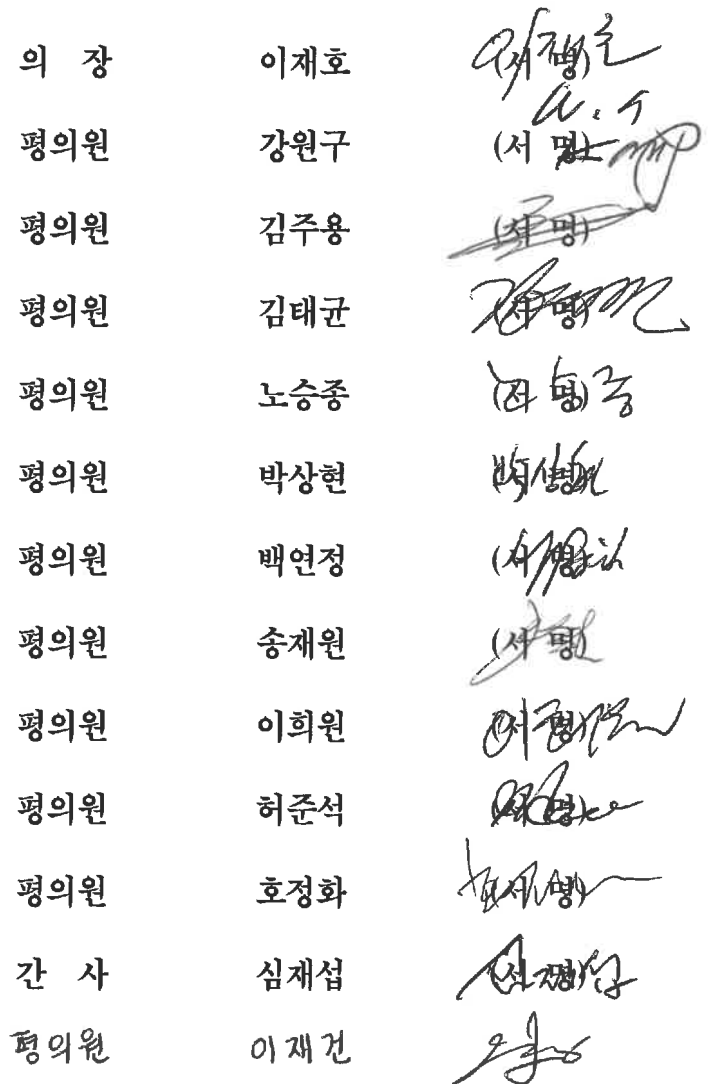 의 장 이재호 (서명)
평의원 강원구 (서 명)
평의원 김주용 (서 명)
평의원 김태균 (서명)
평의원 노승종 (서 명)
평의원 박상현 (서명)
평의원 백연정 (서명)
평의원 송재원 (서 명)
평의원 이희원 (서명)
평의원 허준석 (서명)
평의원 호정화 (서명)
간 사 심재섭 (서명)
평의원 이재건